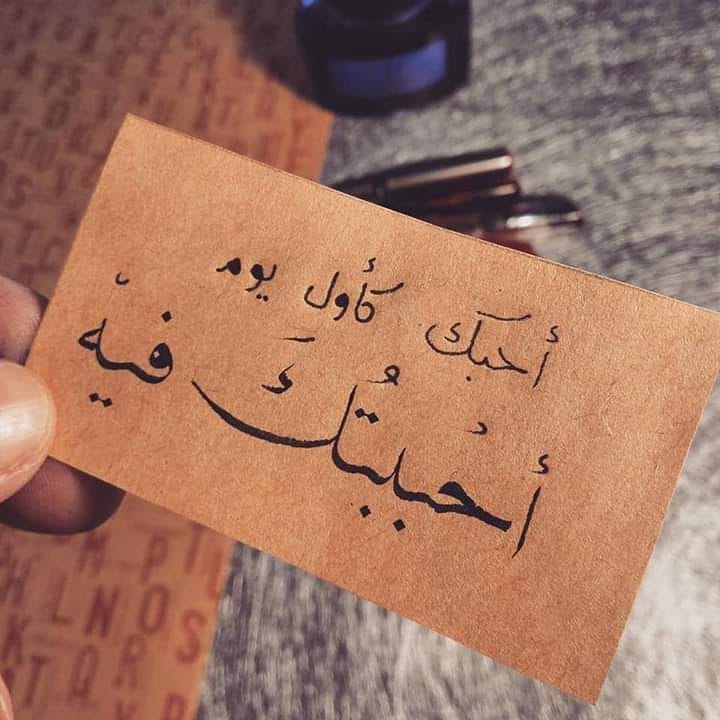 أحبك كأول يوم
أحُببتُكَ فيه